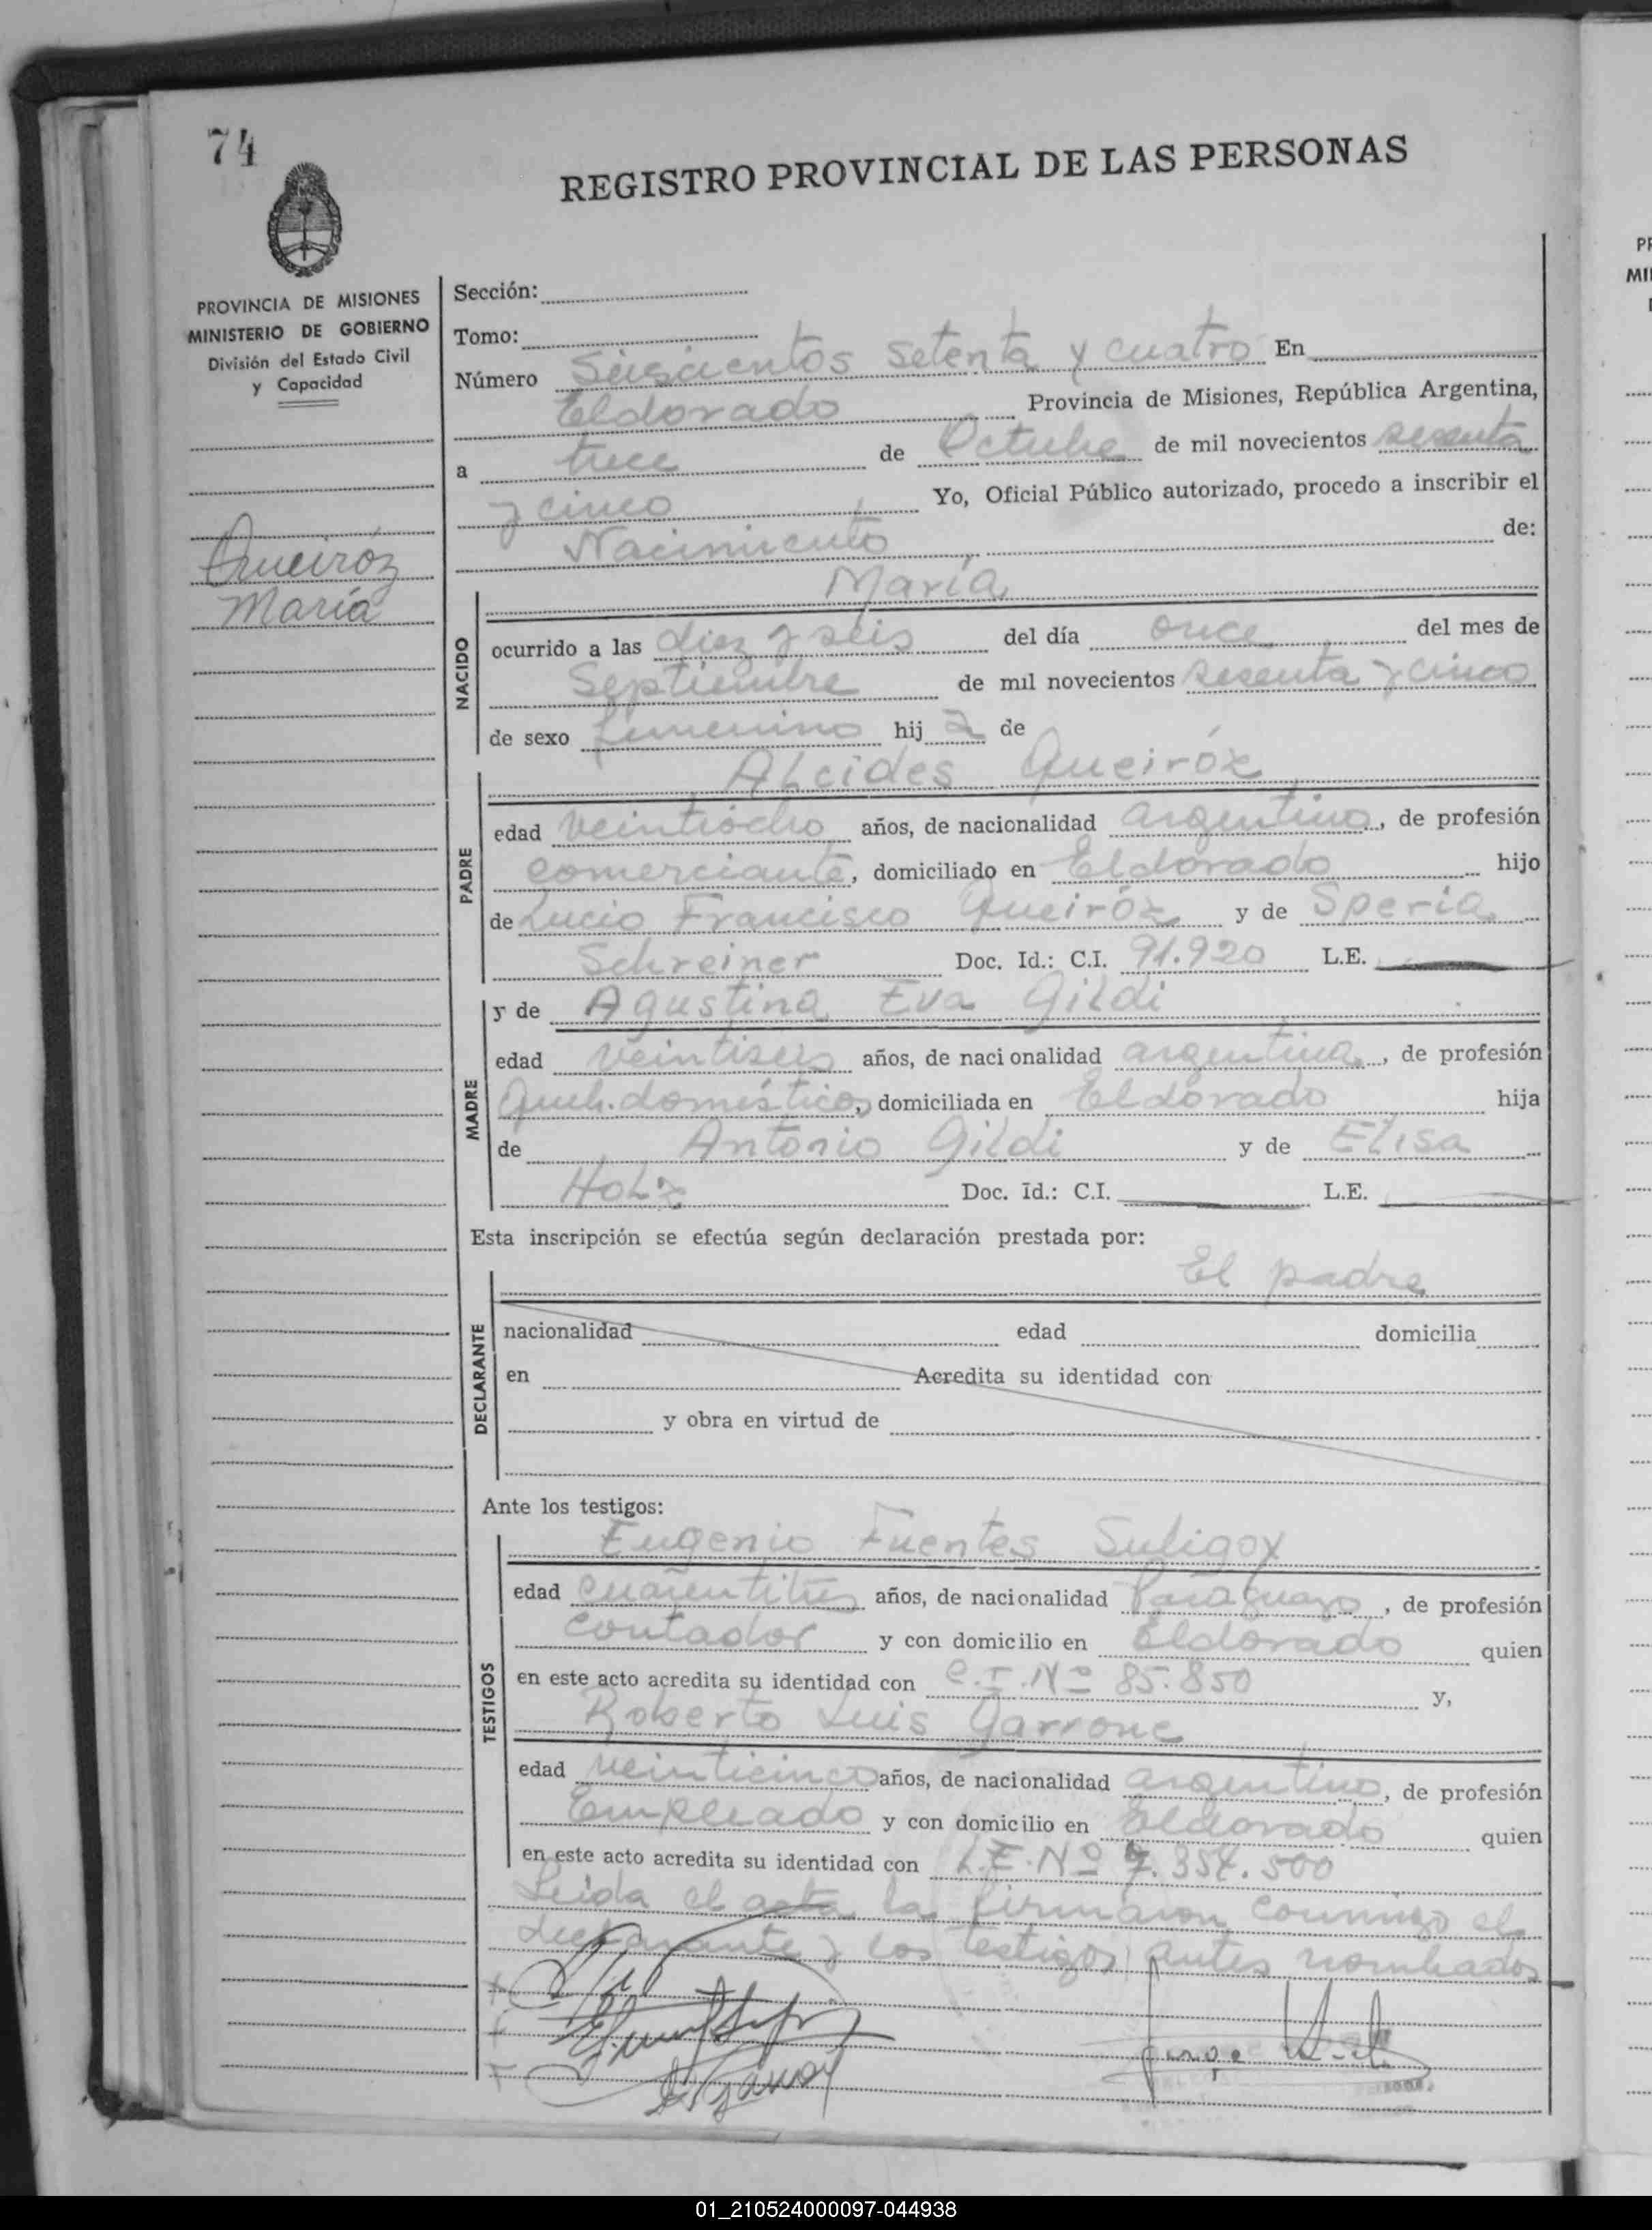 74
REGISTRO PROVINCIAL DE LAS PERSONAS
PROVINCIA DE MISIONES
MINISTERIO DE GOBIERNO
División del Estado Civil
y Capacidad
Queiróz
María
Sección:
Tomo:
Número Seiscientos setenta y cuatro En
Eldorado Provincia de Misiones, República Argentina,
a trece de Octubre de mil novecientos sesenta
y cinco Yo, Oficial Público autorizado, procedo a inscribir el
Nacimiento de:
María
NACIDO
ocurrido a las diez y seis del día once del mes de
Septiembre de mil novecientos sesenta y cinco
de sexo femenino hij a de
Alcides Queiróz
PADRE
edad veintiocho años, de nacionalidad argentina, de profesión
comerciante, domiciliado en Eldorado hijo
de Lucio Francisco Queiróz y de Speria
Schreiner Doc. Id.: C.I. 91.920 L.E.
MADRE
y de Agustina Eva Gildi
edad veintiseis años, de naci onalidad argentina, de profesión
Queh. domésticos, domiciliada en Eldorado hija
de Antonio Gildi y de Elisa
Holz Doc. Id.: C.I. L.E.
Esta inscripción se efectúa según declaración prestada por:
El padre
DECLARANTE
nacionalidad edad domicilia
en Acredita su identidad con
y obra en virtud de
Ante los testigos:
TESTIGOS
Eugenio Fuentes Suligoy
edad cuarentitres años, de nacionalidad Paraguayo, de profesión
Contador y con domicilio en Eldorado quien
en este acto acredita su identidad con C.I. Nº 85.850 y,
Roberto Luis Garrone
edad veinticinco años, de nacionalidad argentino, de profesión
Empleado y con domicilio en Eldorado quien
en este acto acredita su identidad con L.E. Nº 357.500
Leida el acta la firmaron conmigo el
declarante y los testigos antes nombrados
01_210524000097-044938